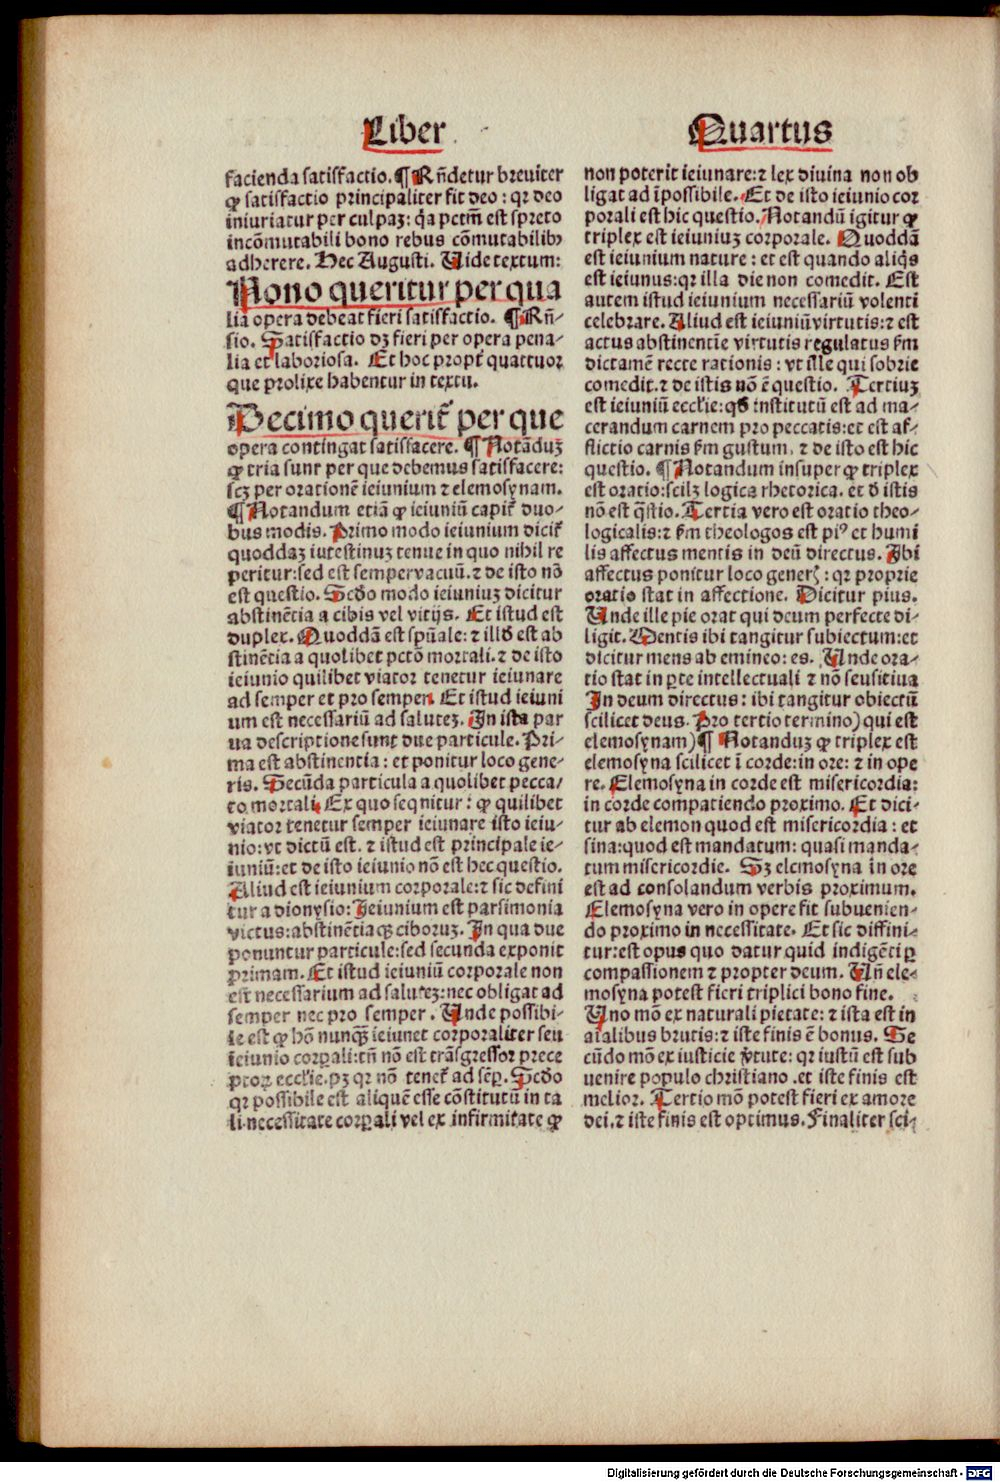 Liber
facienda satisfactio. ¶ Rñdetur breuiter
ꝙ satisfactio principaliter fit deo : qꝛ deo
iniuriatur per culpaꝫ: q̃a pctm̃ est spreto
incõmutabili bono rebus cõmutabilibꝰ
adherere. Hec Augusti. Uide textum:
Nono queritur per qua
lia opera debeat fieri satisfactio. ¶ Rñ-
sio. Satisfactio dꝫ fieri per opera pena-
lia et laboriosa. Et hoc propt̃ quattuor
que prolixe habentur in textu.
Decimo querit̃ per que
opera contingat satisfacere. ¶ Notãduꝫ
ꝙ tria sunt per que debemus satisfacere:
scꝫ per orationẽ ieiunium ⁊ elemosynam.
¶ Notandum etiã ꝙ ieiuniũ capit̃ duo-
bus modis. Primo modo ieiunium dicit̃
quoddaꝫ iutestinuꝫ tenue in quo nihil re
peritur:sed est semper vacuũ. ⁊ de isto nõ
est questio. Scd̃o modo ieiuniuꝫ dicitur
abstinẽtia a cibis vel vitijs. Et istud est
duplex. Quoddã est spũale: ⁊ illd̃ est ab
stinẽtia a quolibet pctõ mortali. ⁊ de isto
ieiunio quilibet viator tenetur ieiunare
ad semper et pro semper. Et istud ieiuni
um est necessariũ ad saluteꝫ. In ista par
ua descriptione sunt due particule. Pri-
ma est abstinentia : et ponitur loco gene-
ris. Secũda particula a quolibet pecca-
to mortali. Ex quo seqnitur : ꝙ quilibet
viator tenetur semper ieiunare isto ieiu-
nio: vt dictũ est. ⁊ istud est principale ie-
iuniũ: et de isto ieiunio nõ est hec questio.
Aliud est ieiunium corporale: ⁊ sic defini
tur a dionysio: Ieiunium est parsimonia
victus: abstinẽtiaqꝫ ciboruꝫ. In qua due
ponuntur particule: sed secunda exponit
primam. Et istud ieiuniũ corporale non
est necessarium ad saluteꝫ: nec obligat ad
semper nec pro semper . Unde possibi-
le est ꝙ hõ nunqꝫ ieiunet corporaliter seu
ieiunio corꝑali: tñ nõ est trãsgressor prece
ptoꝝ ecclie. pꝫ qꝛ nõ tenet̃ ad sẽꝑ. Scd̃o
qꝛ possibile est aliquẽ esse cõstitutũ in ta
li necessitate corꝑali vel ex infirmitate ꝙ
Quartus
non poterit ieiunare: ⁊ lex diuina non ob
ligat ad ĩpossibile. Et de isto ieiunio cor
porali est hic questio. Notandũ igitur ꝙ
triplex est ieiuniuꝫ corporale. Quoddã
est ieiunium nature : et est quando aliq̃s
est ieiunus: qꝛ illa die non comedit. Est
autem istud ieiunium necessariũ volenti
celebrare. Aliud est ieiuniũ virtutis: ⁊ est
actus abstinentie virtutis regulatus ẜm
dictamẽ recte rationis : vt ille qui sobrie
comedit. ⁊ de istis nõ ẽ questio. Tertiuꝫ
est ieiuniũ ecclie: qd̃ institutũ est ad ma-
cerandum carnem pro peccatis: et est af-
flictio carnis ẜm gustum, ⁊ de isto est hic
questio. ¶ Notandum insuper ꝙ triplex
est oratio: scilꝫ logica rhetorica. et d̃ istis
nõ est q̃stio. Tertia vero est oratio theo-
logicalis: ⁊ ẜm theologos est piꝰ et humi
lis affectus mentis in deũ directus. Ibi
affectus ponitur loco generꝭ : qꝛ proprie
oratio stat in affectione. Dicitur pius.
Unde ille pie orat qui deum perfecte di-
ligit. Mentis ibi tangitur subiectum: et
dicitur mens ab emineo: es. Unde ora-
tio stat in ꝑte intellectuali ⁊ nõ seusitiua
In deum directus : ibi tangitur obiectũ
scilicet deus. Pro tertio termino) qui est
elemosynam) ¶ Notanduꝫ ꝙ triplex est
elemosyna scilicet ĩ corde: in ore: ⁊ in ope
re. Elemosyna in corde est misericordia:
in corde compatiendo proximo. Et dici-
tur ab elemon quod est misericordia : et
sina: quod est mandatum: quasi manda-
tum misericordie. Sꝫ elemosyna in ore
est ad consolandum verbis proximum.
Elemosyna vero in opere fit subuenien-
do proximo in necessitate. Et sic diffini-
tur: est opus quo datur quid indigẽti ꝑ
compassionem ⁊ propter deum. Uñ ele-
mosyna potest fieri triplici bono fine.
Uno mõ ex naturali pietate: ⁊ ista est in
aĩalibus brutis: ⁊ iste finis ẽ bonus. Se
cũdo mõ ex iusticie v̓tute: qꝛ iustũ est sub
uenire populo christiano .et iste finis est
melior. Tertio mõ potest fieri ex amore
dei. ⁊ iste finis est optimus. Finaliter sci-
Digitalisierung gefördert durch die Deutsche Forschungsgemeinschaft - DFG